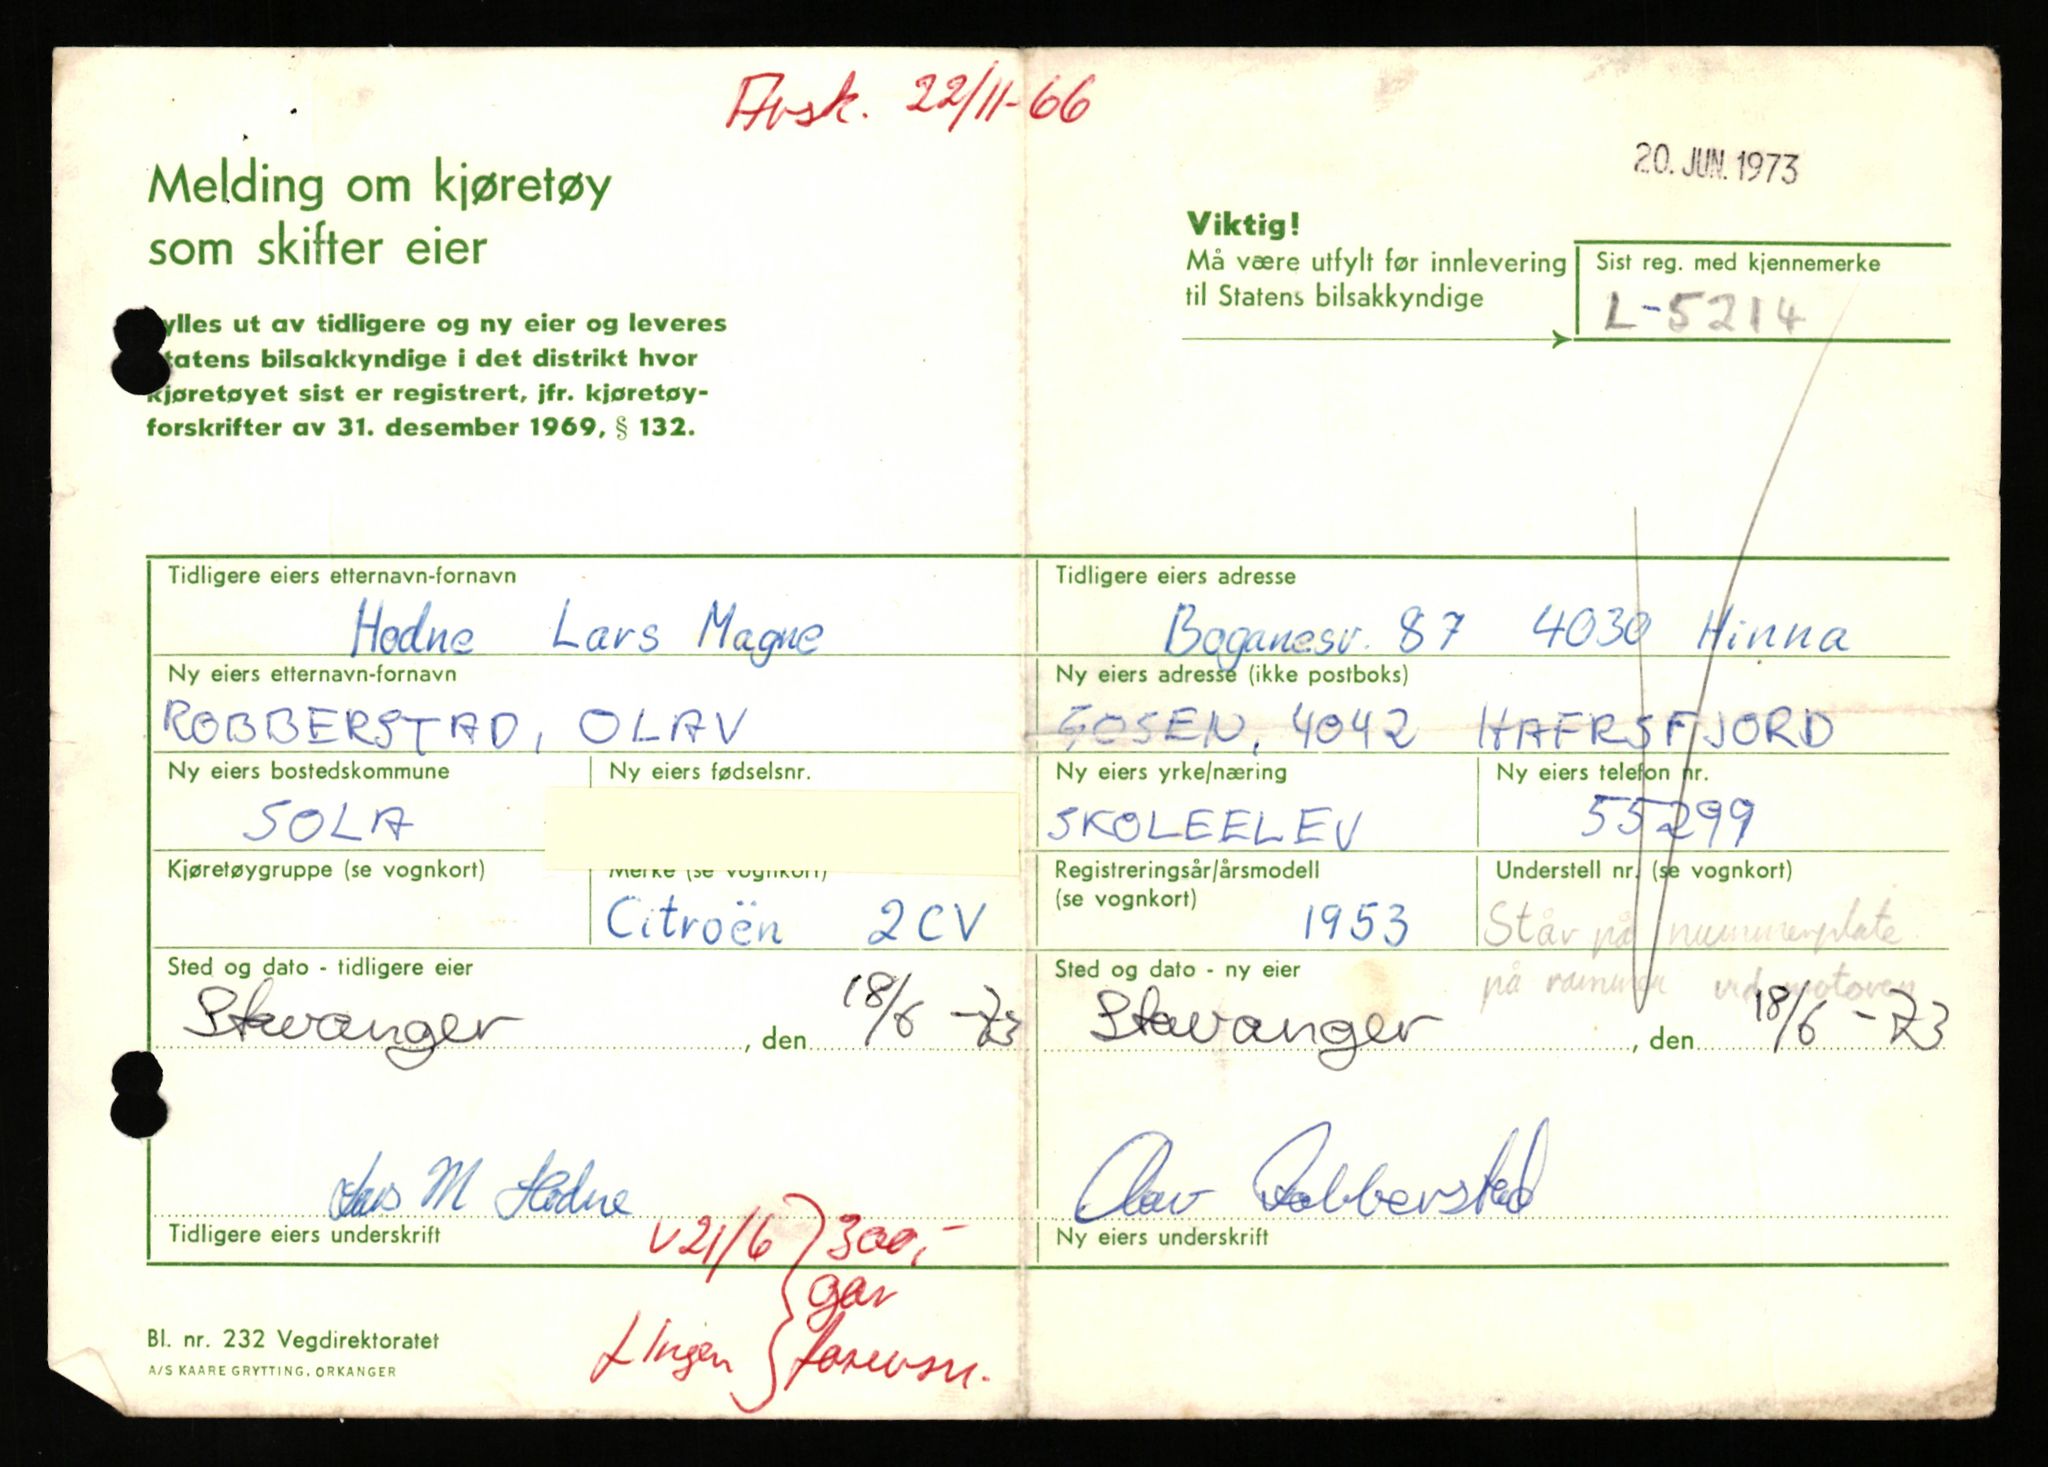 Avsk. 22/11-66
20. JUN. 1973
Melding om kjøretøy
som skifter eier
ylles ut av tidligere og ny eier og leveres
tatens bilsakkyndige i det distrikt hvor
kjøretøyet sist er registrert, jfr. kjøretøy-
forskrifter av 31. desember 1969, § 132.
Viktig!
Må være utfylt før innlevering
til Statens bilsakkyndige
Sist reg. med kjennemerke
L-5214
Tidligere eiers etternavn-fornavn
Hodne Lars Magne
Tidligere eiers adresse
Boganesv. 87 4030 Hinna
Ny eiers etternavn-fornavn
ROBBERSTAD, OLAV
Ny eiers adresse (ikke postboks)
GOSEN, 4042 HAFRSFJORD
Ny eiers bostedskommune
SOLA
Ny eiers fødselsnr.
Ny eiers yrke/næring
SKOLEELEV
Ny eiers telefon nr.
55299
Kjøretøygruppe (se vognkort)
Merke (se vognkort)
Citroën 2CV
Registreringsår/årsmodell
(se vognkort)
1953
Understell nr. (se vognkort)
Står på nummerplate
på rammen ved motoren
Sted og dato - tidligere eier
Stavanger, den 18/6 -73
Sted og dato - ny eier
Stavanger, den 18/6 -73
Lars M Hodne
Tidligere eiers underskrift
Olav Robberstad
Ny eiers underskrift
v 21/6 300,-
gar
Ingen
Bl. nr. 232 Vegdirektoratet
A/S KAARE GRYTTING, ORKANGER